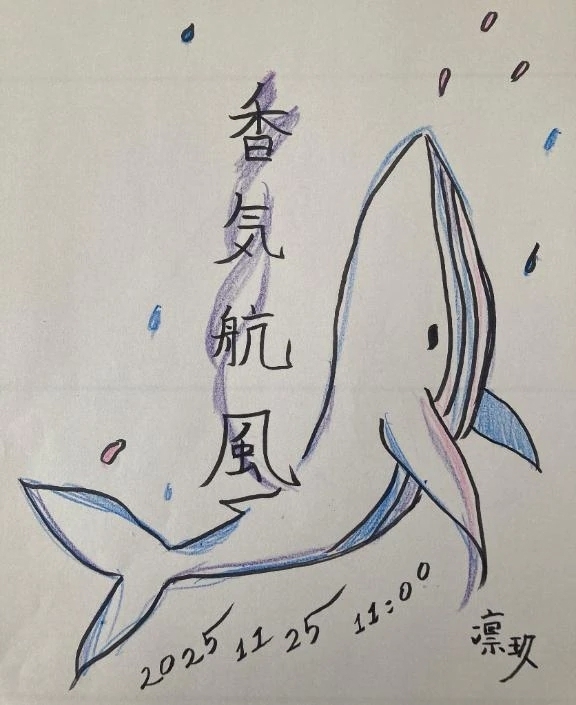 香気航風
2025 11 25 11:00
凛玖